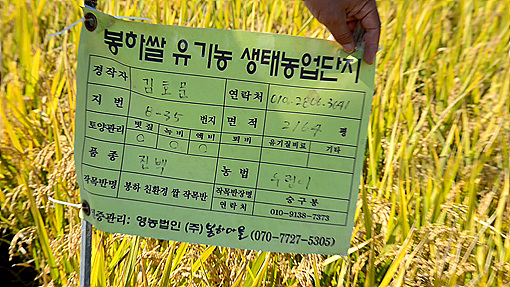 봉하쌀 유기농 생태농업단지
경작자 김호문 연락처
지번 8-35 번지 면적 2164 평
토양관리 볏짚 녹비 액비 퇴비 유기질비료 기타
○ ○ ○
품종 진백 농법 우렁이
작목반명 봉하 친환경 쌀 작목반 작목반장명 송구봉
연락처 010-9138-7373
관리: 영농법인 (주)봉하마을 (070-7727-5305)